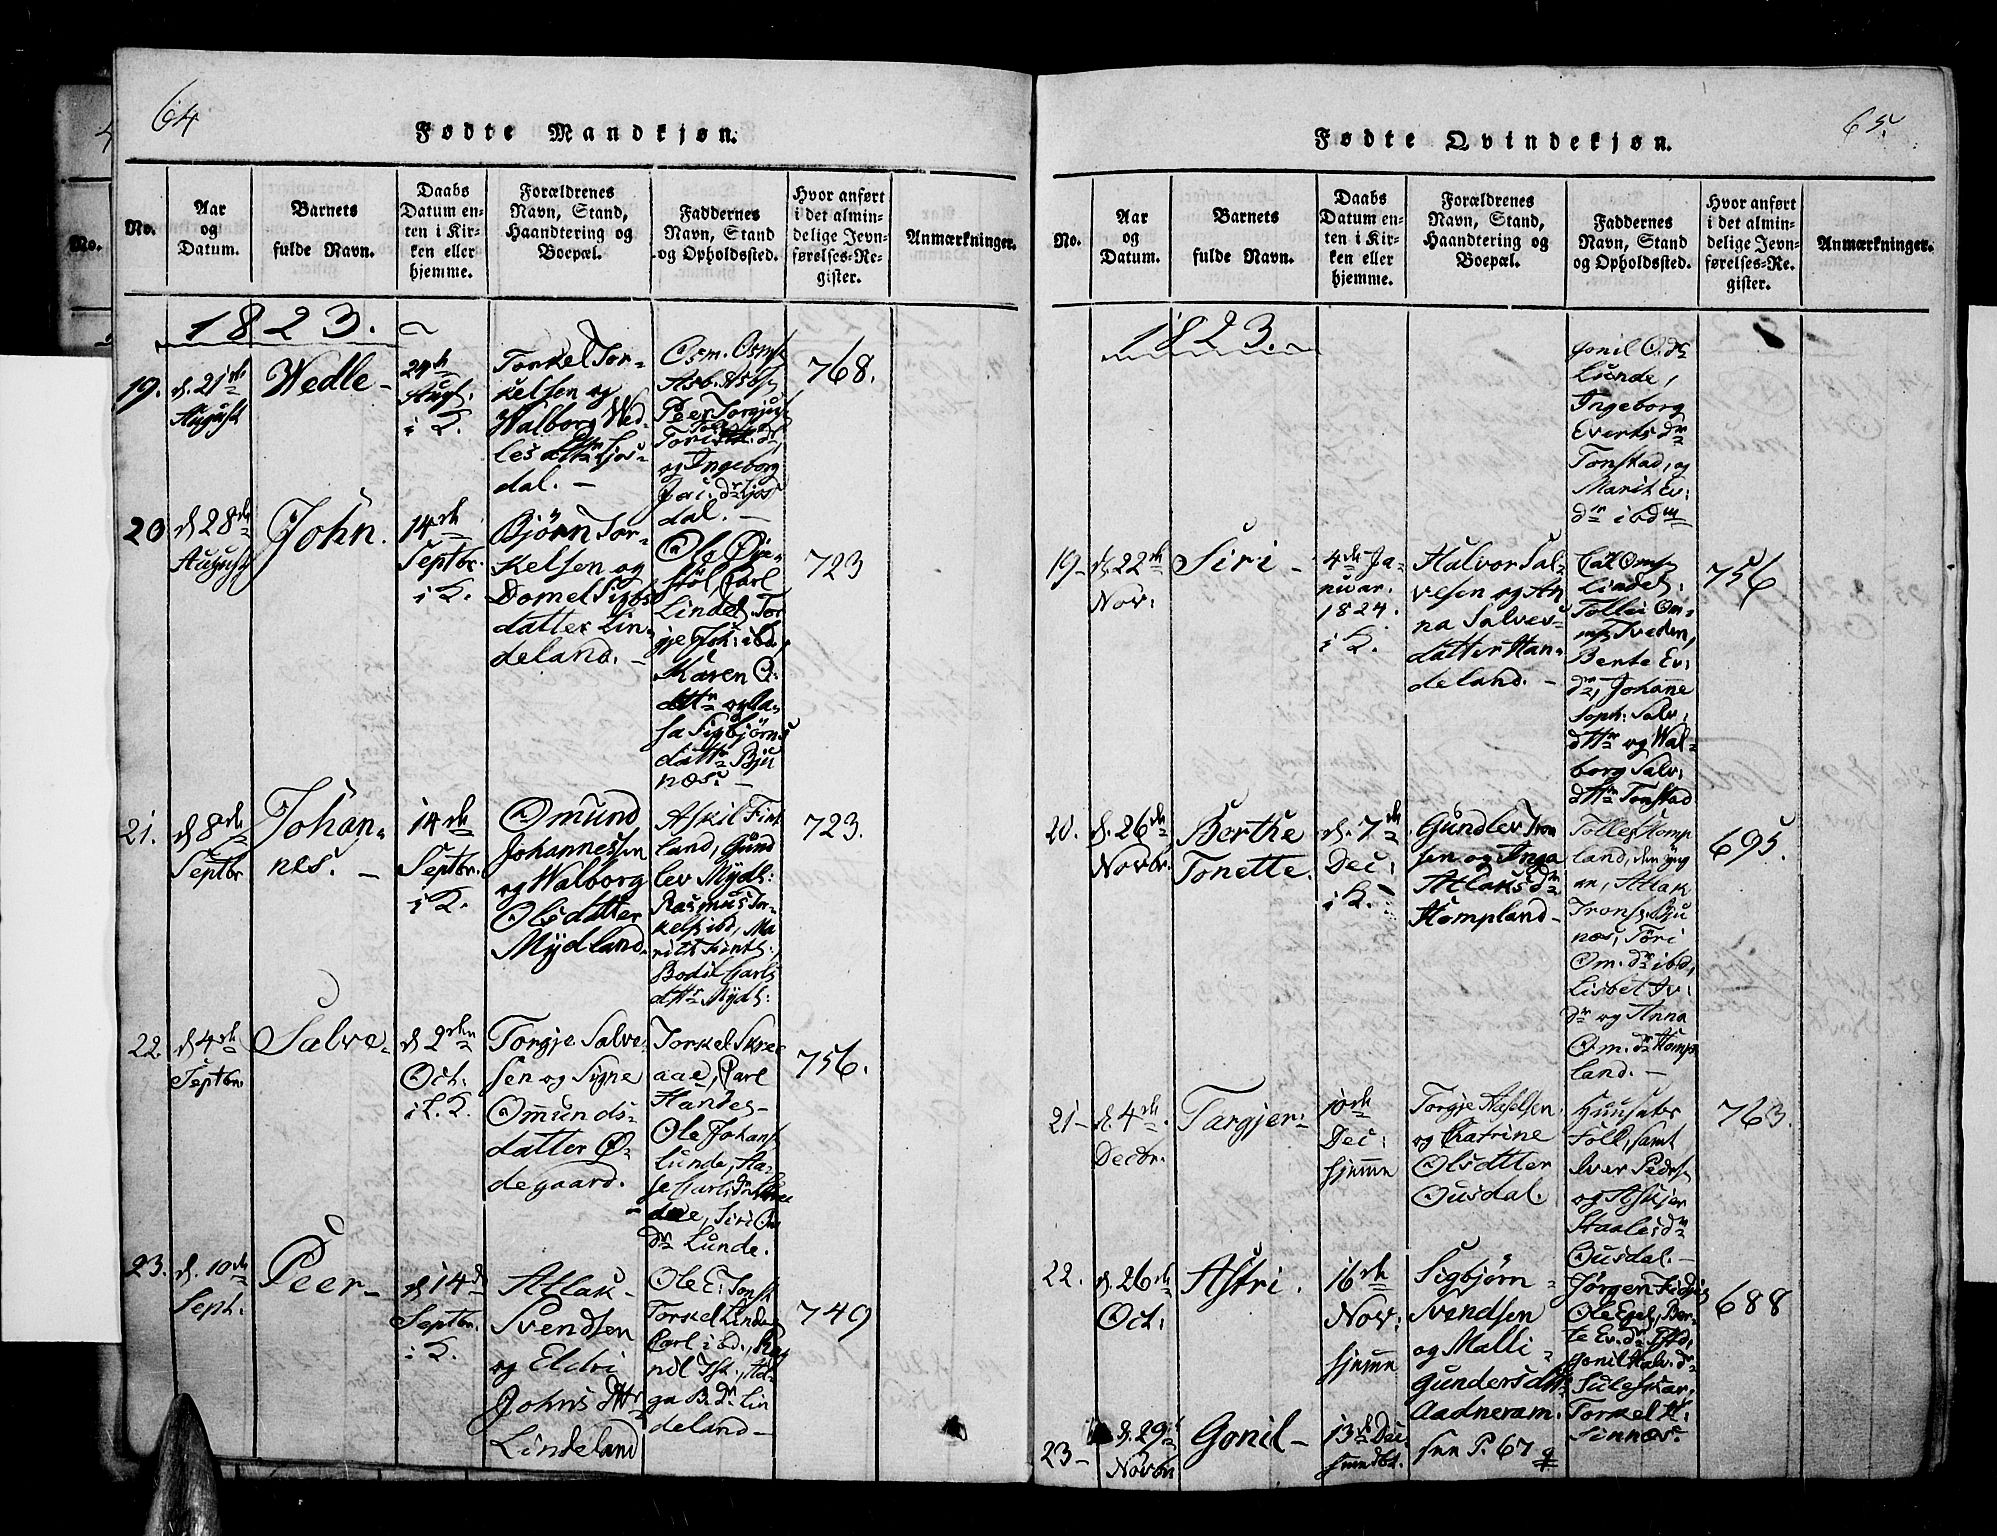 64
Fødte Mandkjøn.
No.
Aar
og
Datum.
Barnets
fulde Navn.
Daabs
Datum en-
ten i Kir-
ken eller
hjemme.
Forældrenes
Navn, Stand,
Haandtering og
Boepæl.
Faddernes
Navn, Stand
og Opholdssted.
Hvor anført
i det almin-
delige Jevn-
førelses-Re-
gister.
Anmærkninger.
1823.
19.
d. 21de
August
Wedle -
24de
Augt.
i K.
Torkel Tor-
kelsen og
Walborg Wed-
les dttr Tjos-
dal. -
Osm. Osms
Asb. Asbs
Peer Torgjus
og Ingeborg
dr Tjos
dal. -
768.
20
d 28de
August
John.
14de
Septbr.
i K.
Bjørn Tor-
kelsen og
Domel Sigbs
datter Lin-
deland. -
Ole Øye-
støl, Carl
Lindel, Tor
je Joh: ibd,
Karen O.
dttr og Aa-
sa Sigbjørns
dattr Bju
næs. -
723
21.
d 8de
Septbr
Johan-
nes. -
14de
Septbr.
i K.
Omund
Johannessen
og Walborg
Olsdatter
Mydland.
Askil Fint
land, Gund
lev Mydl:
Rasmus Tor-
kels ibd, Ma
rit Fintl:,
Bodil Carls
dttr Mydl:
723.
22.
d 4de
Septbr.
Salve-
d 2den
Oct.
i L. K.
Torgje Salve-
sen og Signe
Omunds-
datter Ø-
degaard.
-
Torkel Skree
aae, Carl
Handel-
Ole Johans
Lunde, Aa-
se Carlsdr
Siri Om
dr Lunde.
756.
23.
d. 10de
Sept.
Peer-
d 14d
Septbr.
i K.
Atlak
Svendsen
og Eldri
Johns dttr
Lindeland
Ole E. Tonst
Torkel Linde
Carl ibd., Rag
nil Tst, Aa-
ga B. dr Lin
deland-
749
65.
Fødte Qvindekjøn.
No.
Aar
og
Datum.
Barnets
fulde Navn.
Daabs
Datum en-
ten i Kir-
ken eller
hjemme.
Forældrenes
Navn, Stand,
Haandtering og
Boepæl.
Faddernes
Navn, Stand
og Opholdssted.
Hvor anført
i det almin-
delige Jevn-
førelses-Re-
gister.
Anmærkninger.
1823.
Gonil O. dr
Lunde,
Ingeborg
Evertsdr
Tonstad, og
Marit Ev:
dr ibdm
19-
d. 22de
Nov:
Siri -
4de Ja-
nuar.
1824.
i K.
Halvor Sal-
vesen og An
na Salves-
datter Han-
deland. -
Carl Oms
Lindel:
Tollei Om-
Tveden,
Berte Ev:
dr, Johanne
Soph: Salv:
dttr og Wal-
borg Salv:
dttr Tonstad
756
20.
d. 26de
Novbr.
Berthe
Tonette.
d. 7de
Dec:
i K.
Gundlev Tron
sen og Inga
Atlaksdr
Hompland-
Tollef Homp
land, den yng
an, Atlak
Trons. Bju
næs, Tori
Om. dr ibd,
Lisbet Iv:
dr og Anna
Om. dr Homp
land. -
695.
21-
d. 4de
Decbr.
Targjer-
10de
Dec:
hjemme
Torgje Axelsen.
og Catrine
Olsdtter
Ousdal.
Huusets
Folk, samt
Iver Peders
og Askjer
Staalesdr
Ousdal. -
763.
22.
d. 26de
Oct:
Astri.
16de
Nov:
hjemme
Sigbjørn
Svendsen
og Malli -
Gundersdttr
Aadneram.
Jørgen Fidje
Ole Egel, Ber-
te Ev. dr
Gonil Halv. dr
Suleskar,
Torkel H.
Sinnæs.
688
23-
d. 29de
Novbr
Gonil-
13de Dec.
hjemdbt.
see P. 67